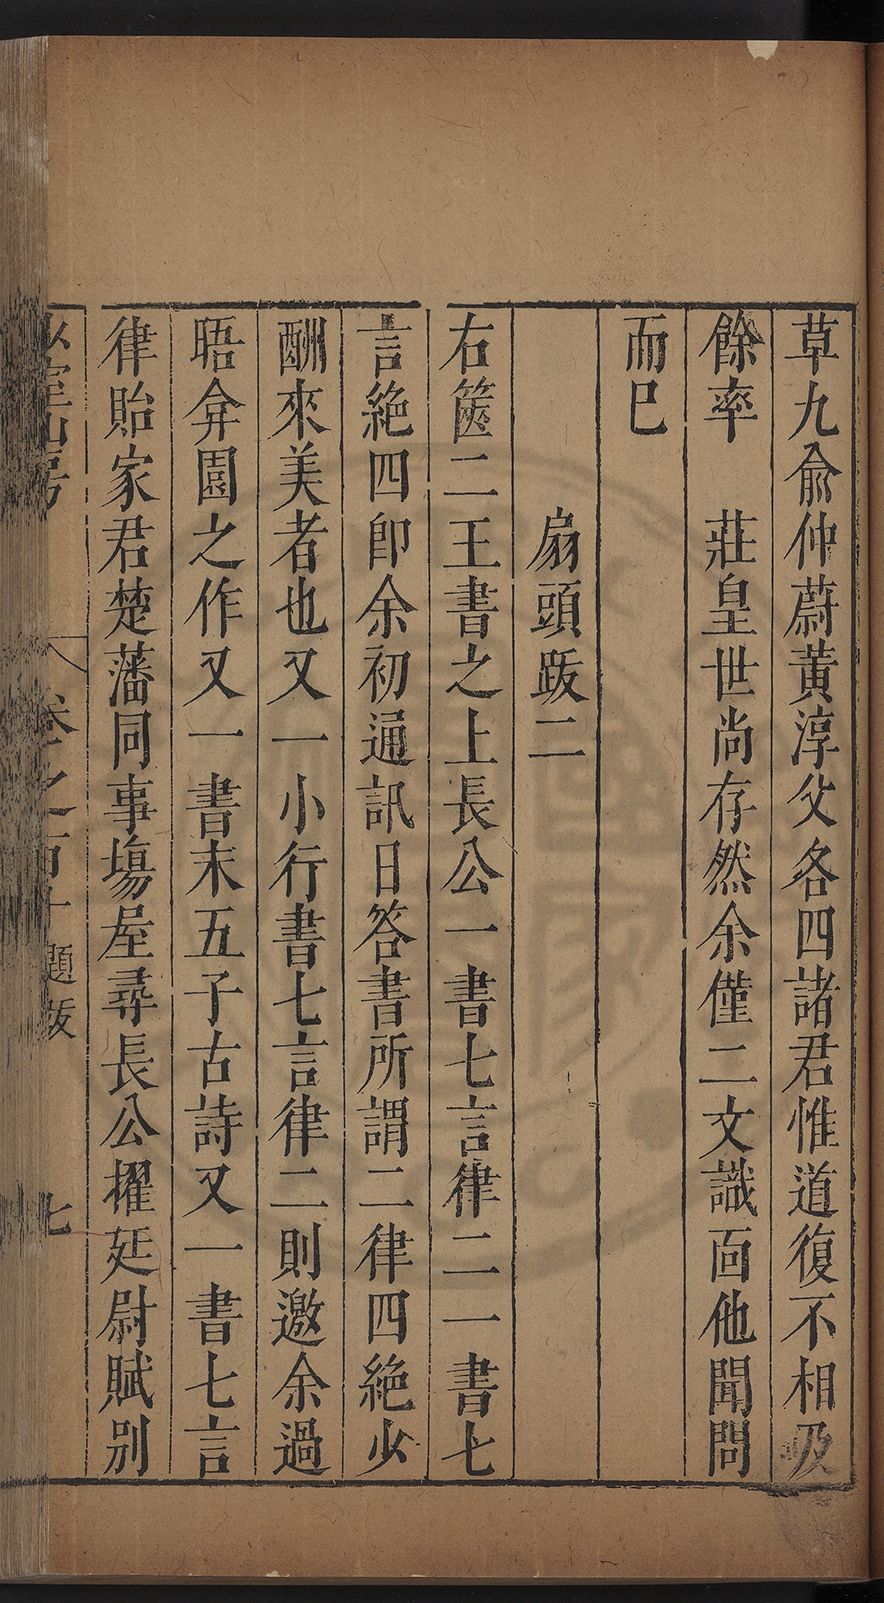 草九俞仲蔚黃淳父各四諸君惟道復不相及
餘率　莊皇世尚存然余僅二文識面他聞問
而已
扇頭跋二
右篋二王書之上長公一書七言律二一書七
言絕四卽余初通訊日答書所謂二律四絕少
酬來美者也又一小行書七言律二則邀余過
晤弇園之作又一書末五子古詩又一書七言
律貽家君楚藩同事塲屋尋長公擢廷尉賦別
卷之百十 題跋 七